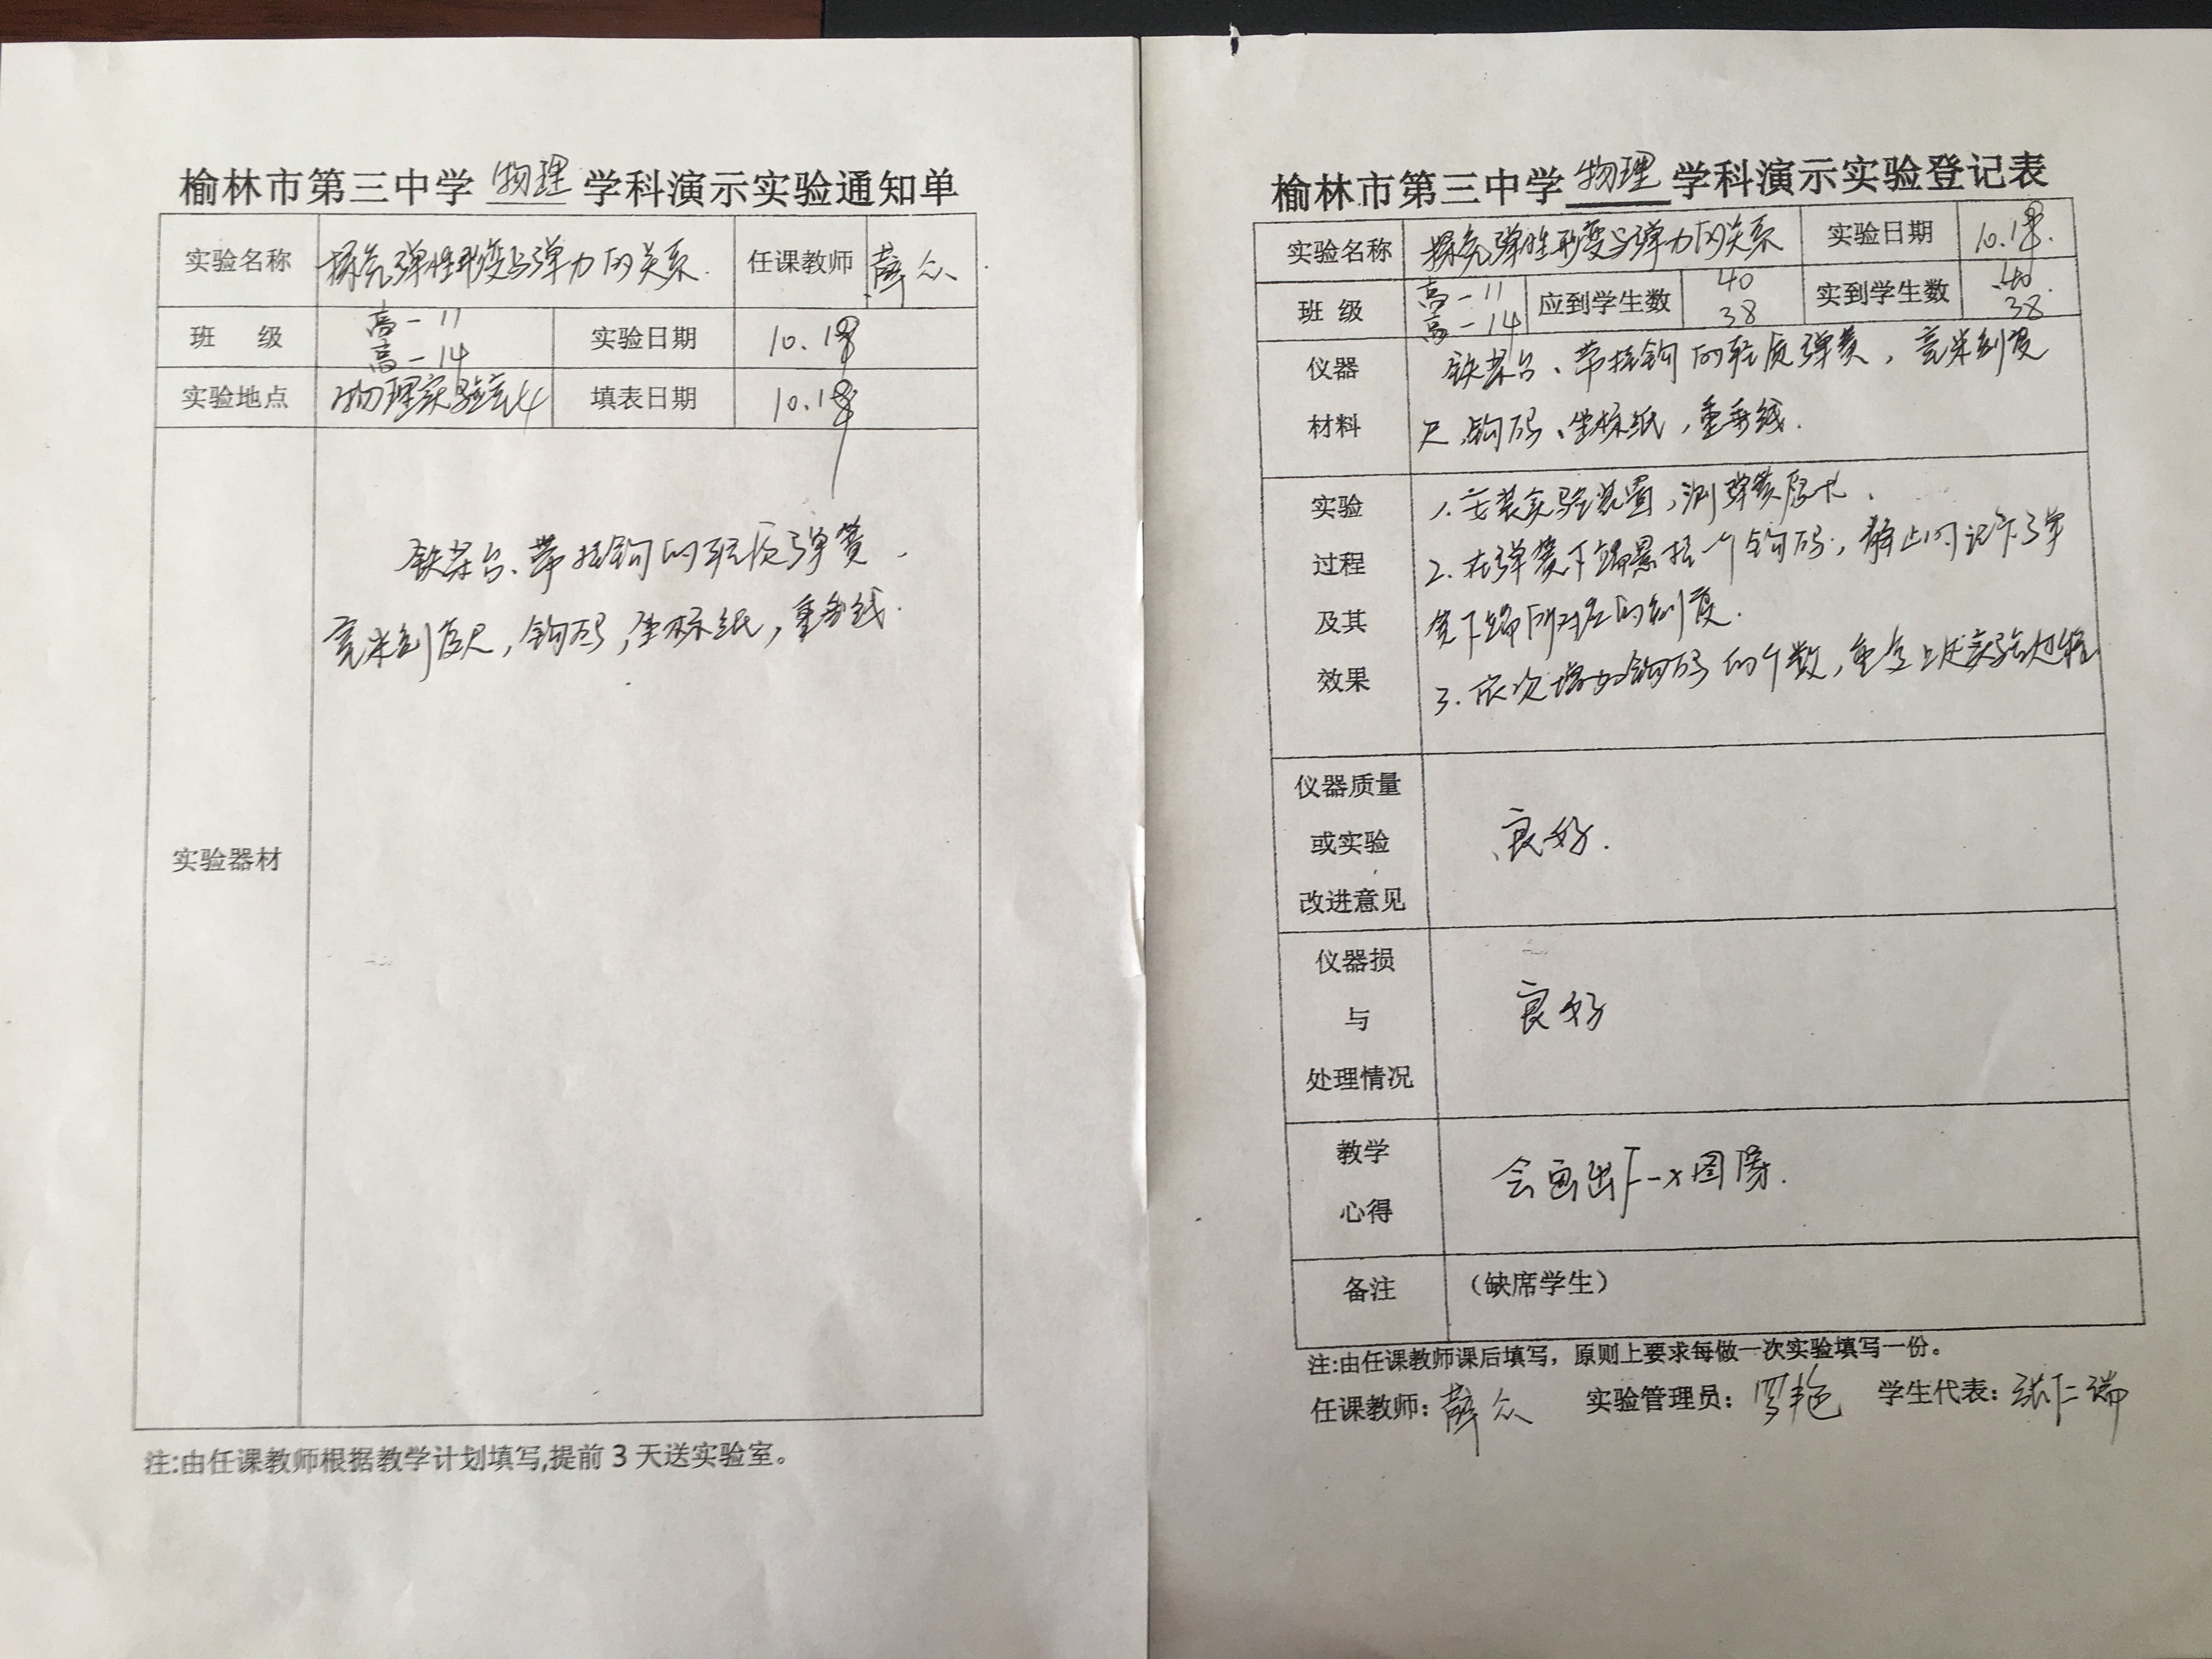 榆林市第三中学 物理 学科演示实验通知单
实验名称 探究弹性形变与弹力的关系. 任课教师 薛众
班 级 高一11 高一14 实验日期 10.18
实验地点 物理实验室4 填表日期 10.18
实验器材
铁架台、带挂钩的轻质弹簧、
毫米刻度尺,钩码,坐标纸,重垂线.
注:由任课教师根据教学计划填写,提前3天送实验室。
榆林市第三中学 物理 学科演示实验登记表
实验名称 探究弹性形变与弹力的关系 实验日期 10.18.
班 级 高一11 高一14 应到学生数 40 38 实到学生数 40. 38
仪器 铁架台、带挂钩的轻质弹簧,毫米刻度
材料 尺、钩码、坐标纸,重垂线.
实验 1.安装实验装置,测弹簧原长.
过程 2.在弹簧下端悬挂一个钩码,静止时记下弹
及其 簧下端所对应的刻度.
效果 3.依次增加钩码的个数,重复上述实验过程
仪器质量
或实验 良好.
改进意见
仪器损
与 良好
处理情况
教学 会画出F-x图像.
心得
备注 (缺席学生)
注:由任课教师课后填写,原则上要求每做一次实验填写一份。
任课教师:薛众 实验管理员:罗艳 学生代表:张仁瑞